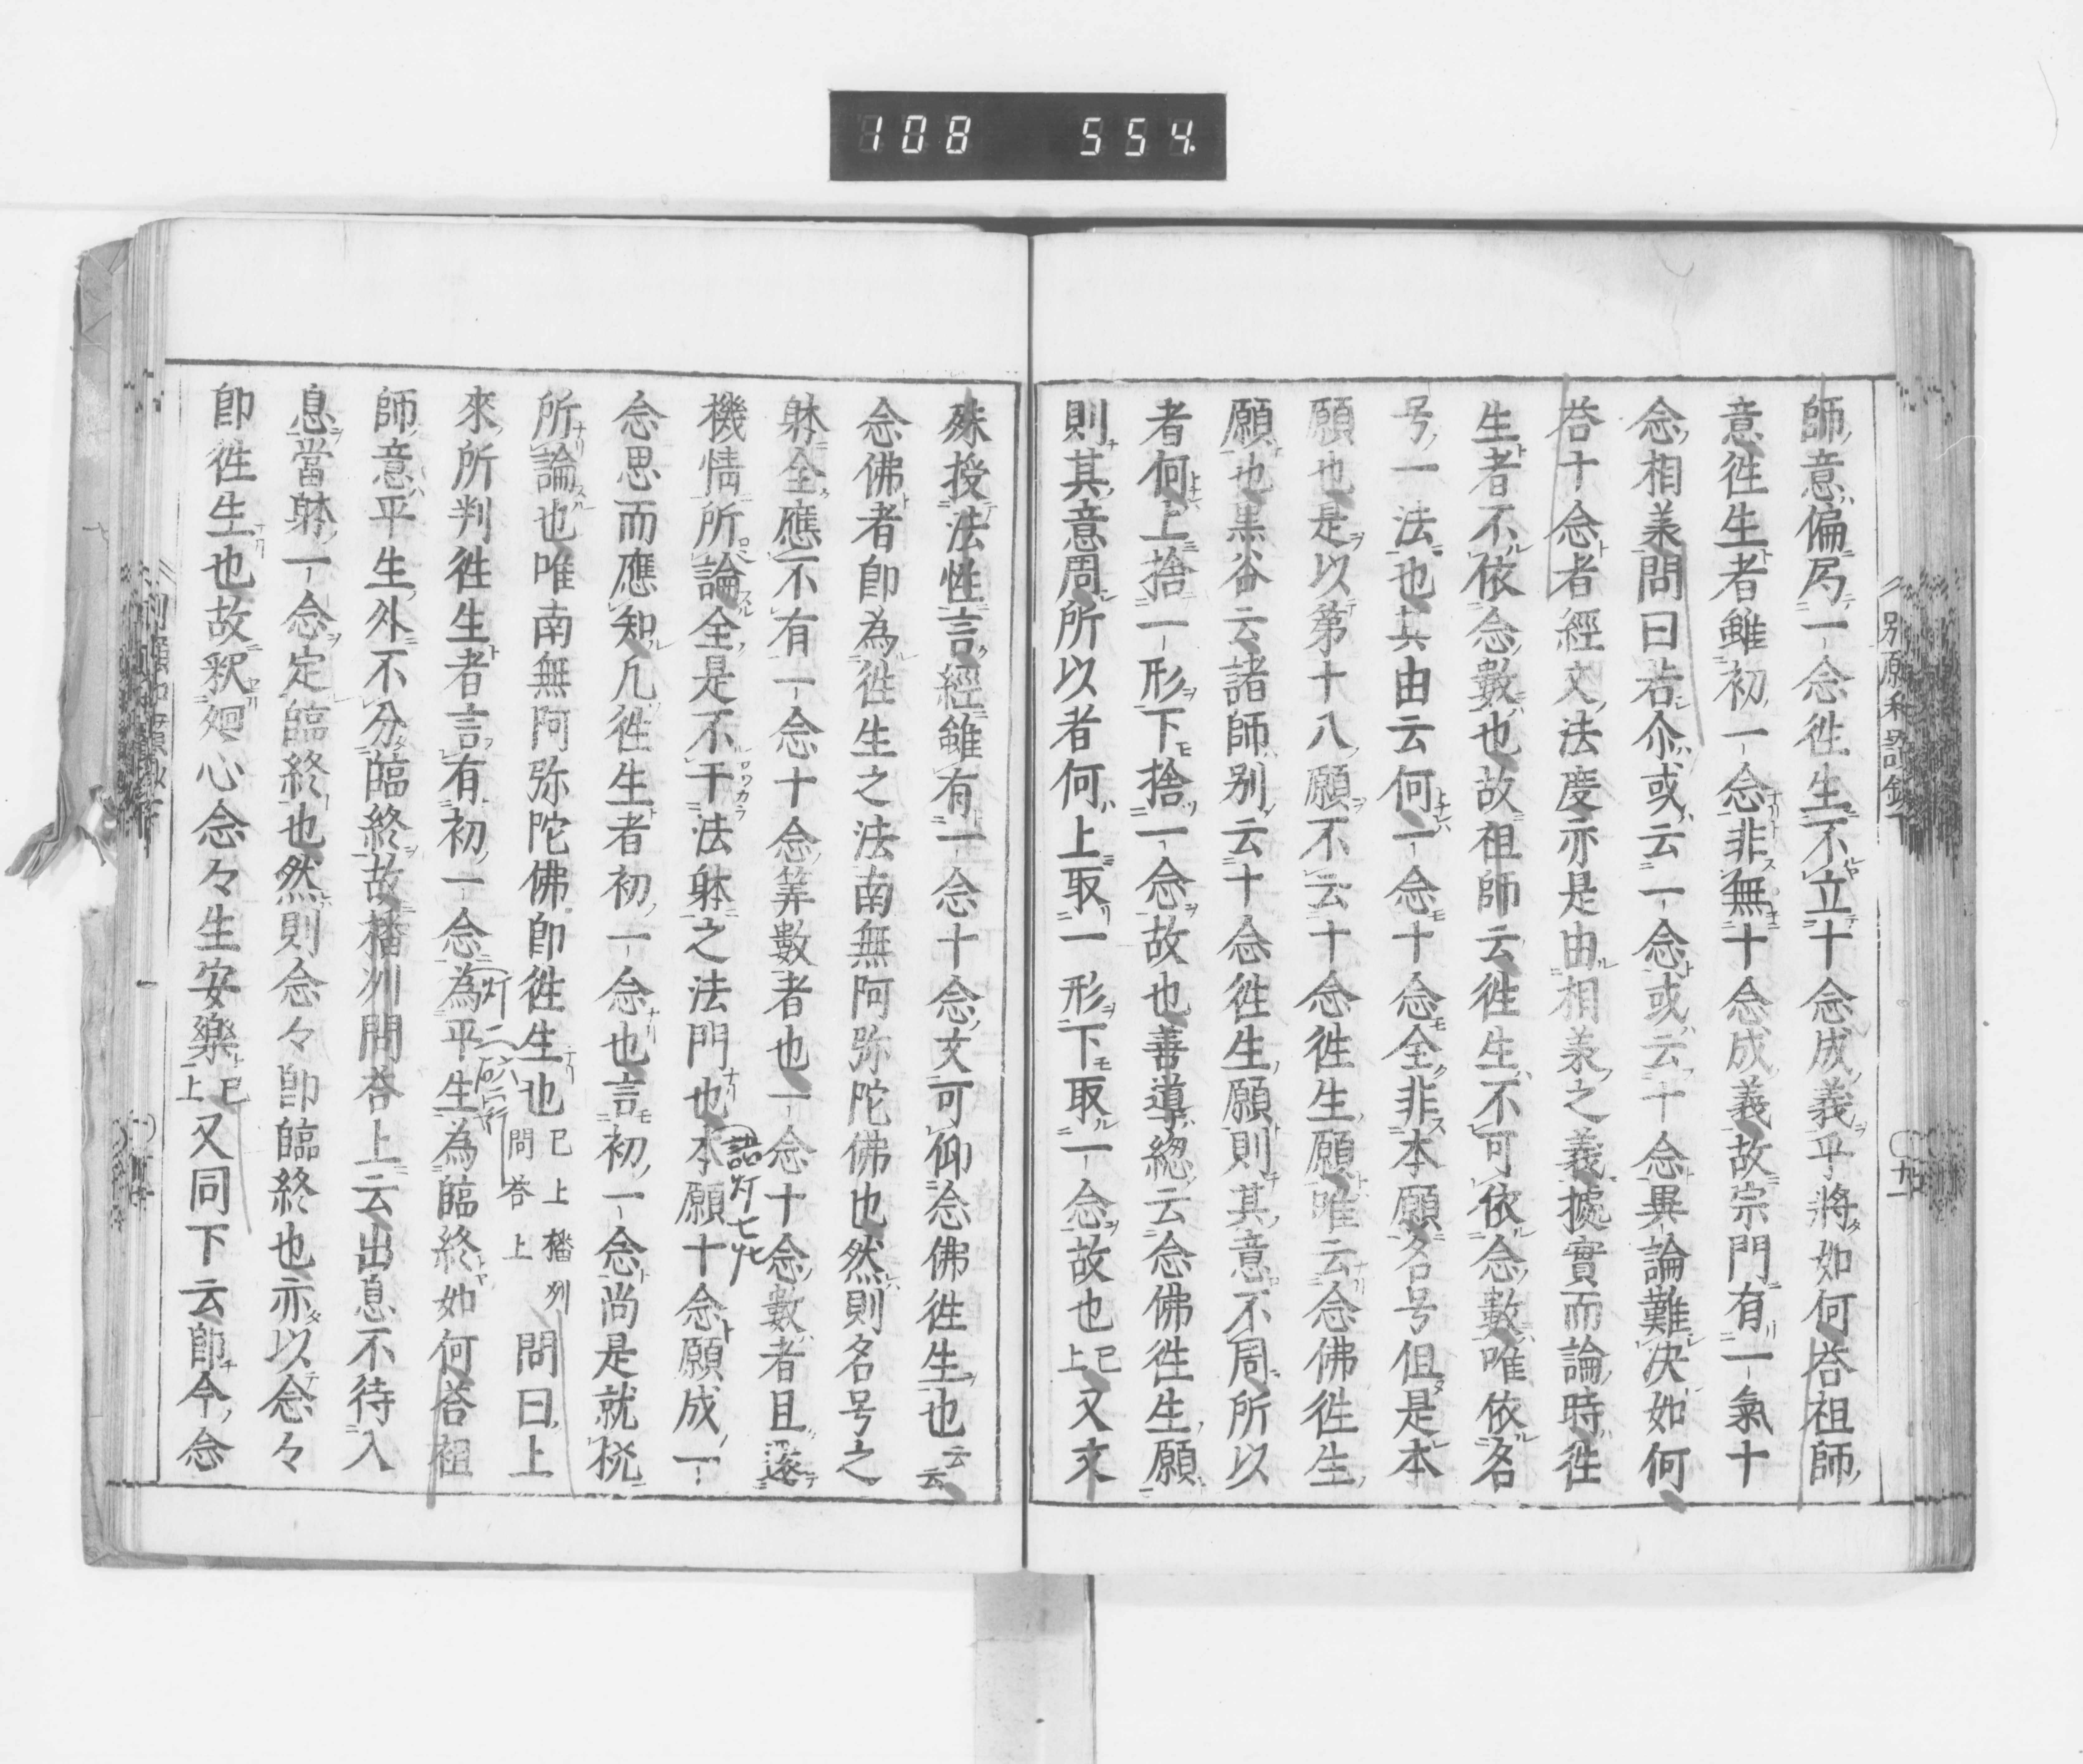 108 554.
師意偏局一念徃生不立十念成義乎將如何荅祖師
意徃生者雖初一念非無十念成義故宗門有一氣十
念相美問曰若尒或云一念或云十念異論難决如何
荅十念者經文法度亦是由相美之義據實而論時徃
生者不依念數也故祖師云徃生不可依念數唯依名
号一法也其由云何一念十念全非本願名号但是本
願也是以第十八願不云十念徃生願唯云念佛徃生
願也黒谷云諸師別云十念徃生願則其意不周所以
者何上捨一形下捨一念故也善導總云念佛徃生願
則其意周所以者何上取一形下取一念故也已上又文
殊授法性言經雖有一念十念文可仰念佛徃生也云云
念佛者即為徃生之法南無阿弥陀佛也然則名号之
躰全應不有一念十念筭數者也一念十念數者且逐
機情所論全是不干法躰之法門也本願十念願成一
念思而應知凡徃生者初一念也言初一念尚是就机
所論也唯南無阿弥陀佛即徃生也已上播州問荅上問曰上
來所判徃生者言有初一念為平生為臨終如何荅祖
師意平生外不分臨終故播州問荅上云出息不待入
息當躰一念定臨終也然則念々即臨終也亦以念々
即徃生也故釈廻心念々生安樂已上又同下云即今念